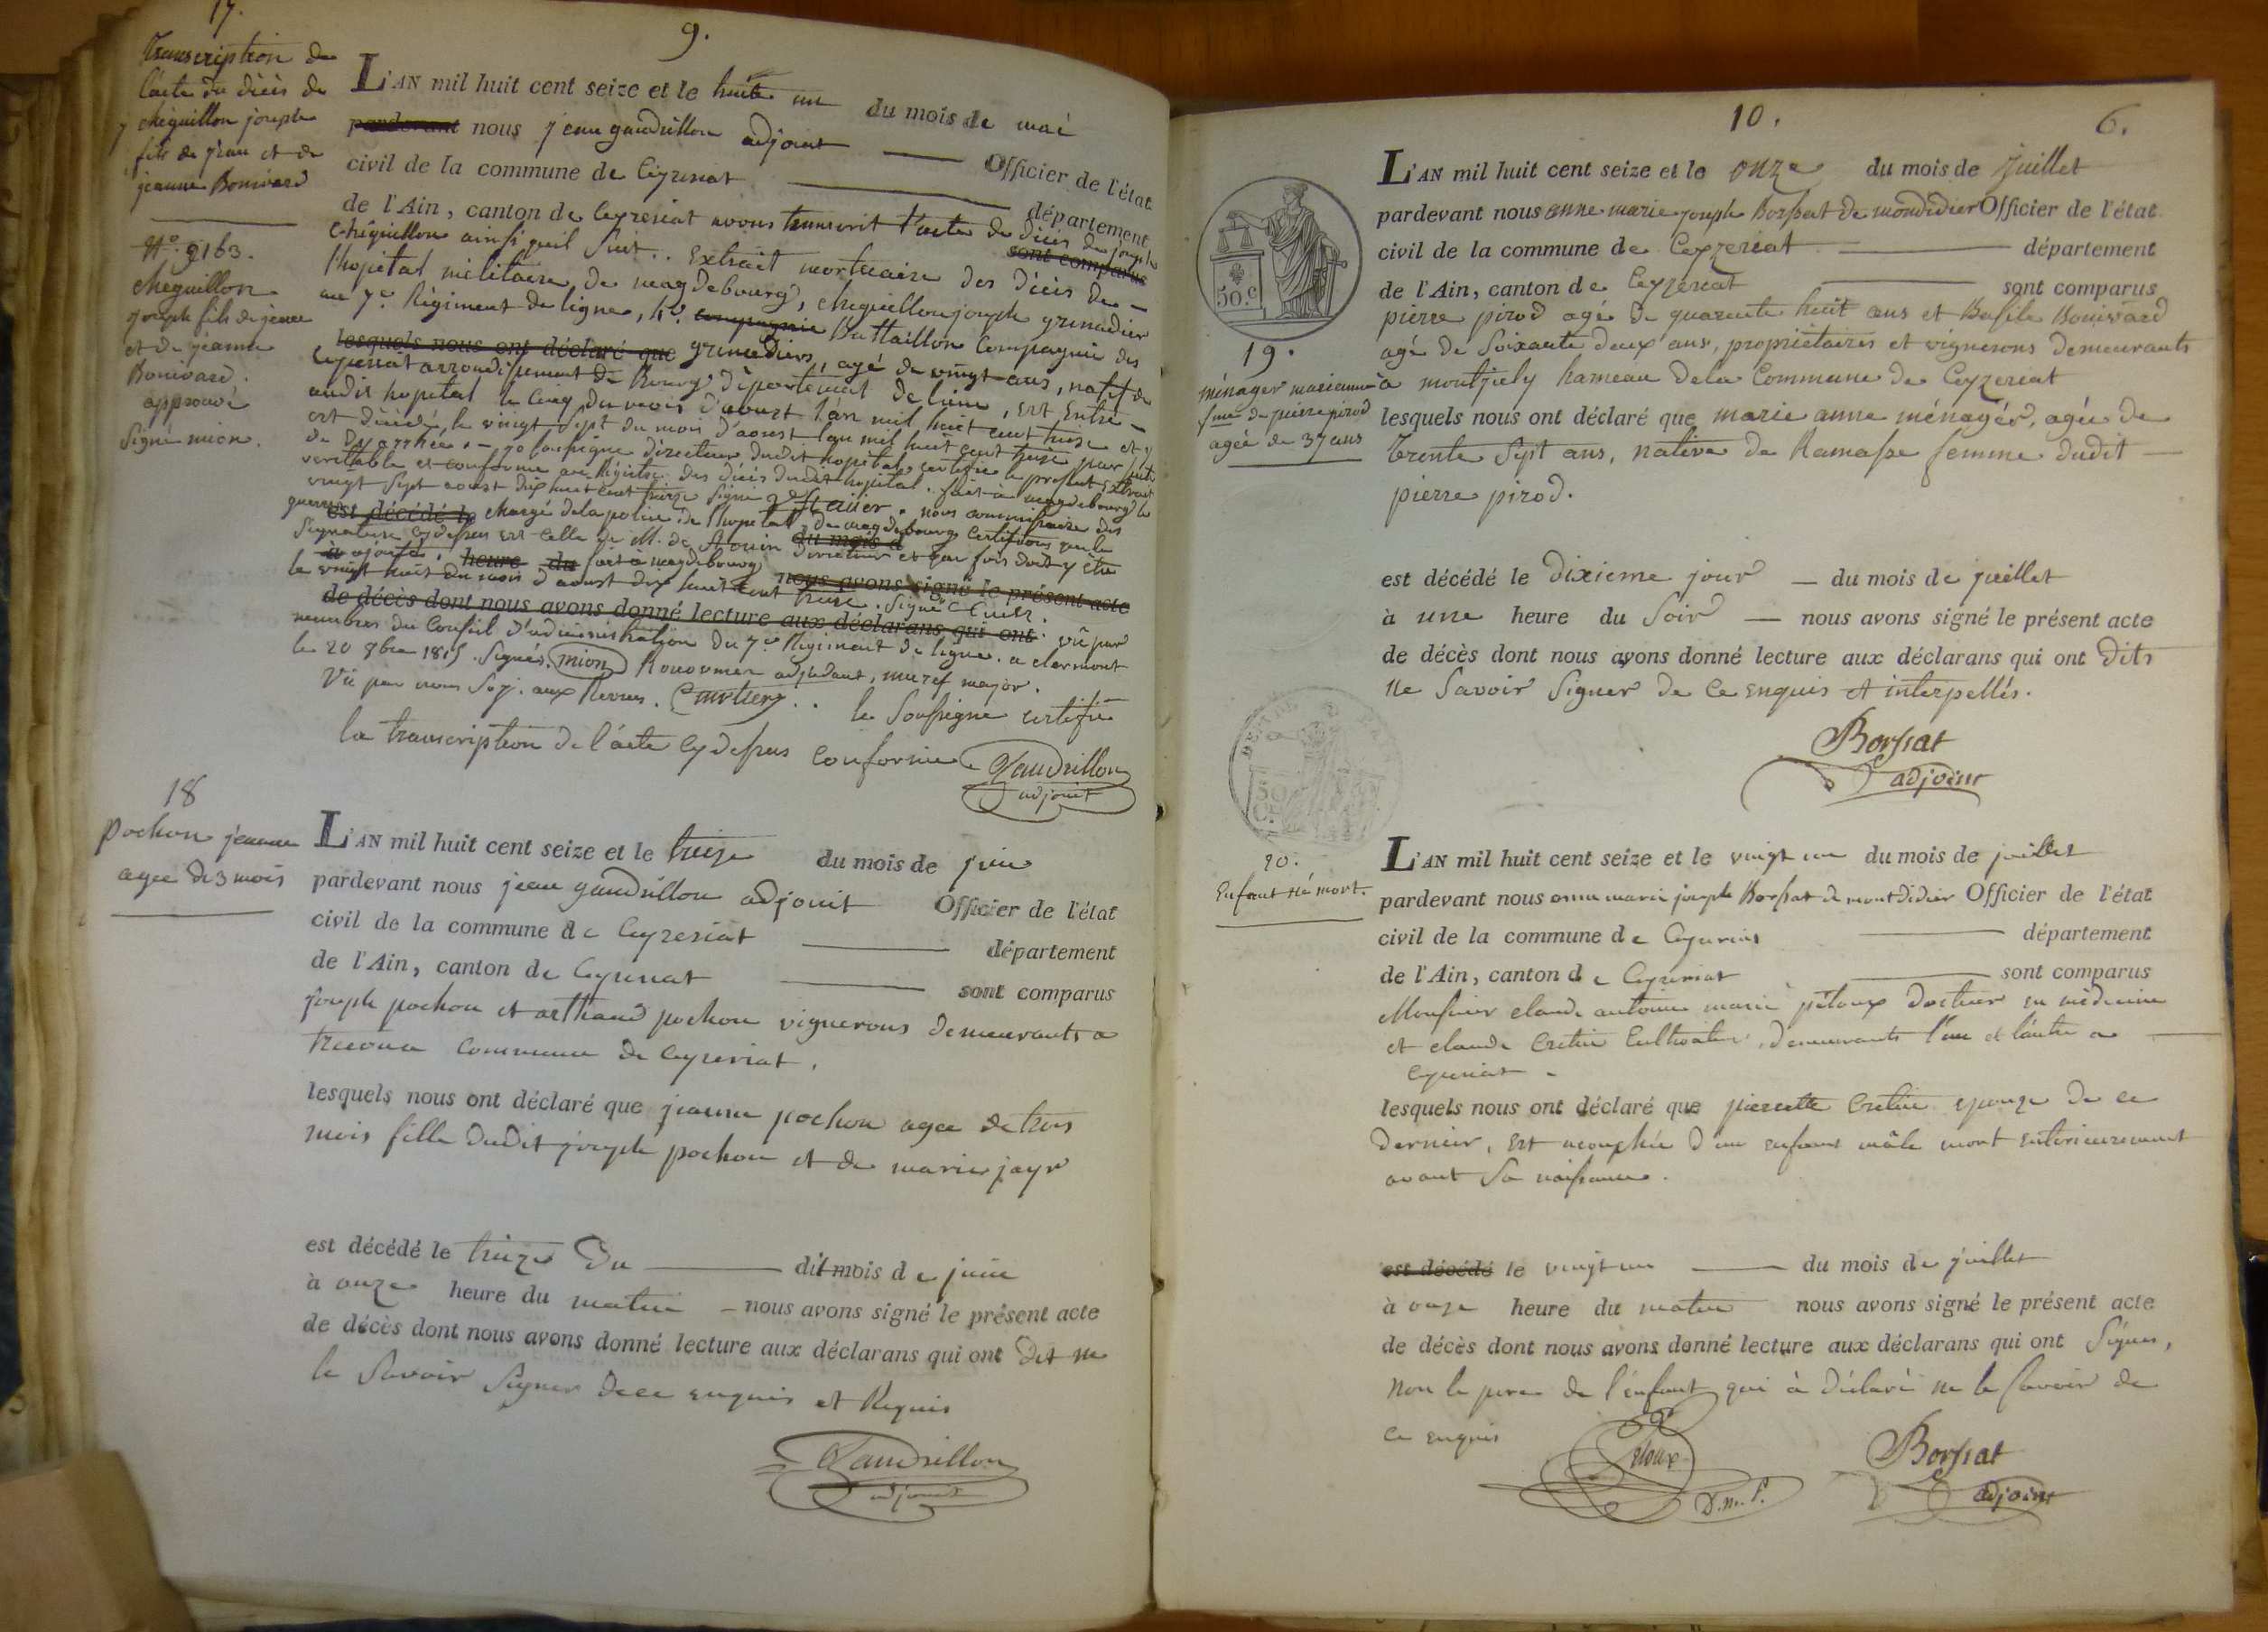 17.
9.
Transcription de
l'acte du décès de
chêguillon joseph
fils de jean et de
jeanne Bonivard
N.° 2163.
cheguillon
joseph fils de jean
et de jeanne
Bonivard.
approuvé
Signé mion.
L'AN mil huit cent seize et le huite un du mois de mai
pardevant nous jean gaudrillon adjoint Officier de l'état
civil de la commune de Ceyzeriat département
de l'Ain, canton de Ceyzeriat avons transcrit l'acte de décès de joseph
sont comparus
chêguillon ainsi qu'il suit.. Extrait mortuaire des décès de
l'hopital militaire de magdebourg, cheguillon joseph grenadier
au 7.e Régiment de ligne, 4.e compagnie Battaillon Compagnie des
lesquels nous ont déclaré que grenadiers, agé de vingt ans, natif de
Ceyzeriat arrondissement de Bourg département de l'ain, est Entré
audit hopital le Cinq du mois d'aoust l'an mil huit cent treize et y
est décédé, le vingt sept du mois d'aoust l'an mil huit cent treize par suite
de dyarrhée. - je soussigné directeur dudit hopital certifie le présent Extrait
veritable et conforme au Registre des décès dudit hopital. fait à magdebourg le
vingt sept aoust dix huit cent treize signé nous commissaire des
guerres est décédé le chargé de la police de l'hopital de magdebourg Certifions que la
Signature cy dessus est celle de M. de du mois d directeur et que foi doit y être
à ajoutée, heure du fait à magdebourg nous avons signé le présent acte
le vingt huit du mois d'aoust dix huit cent treize. Signé
de décès dont nous avons donné lecture aux déclarans qui ont vû par
membres du Conseil d'administration du 7.e Régiment de ligne. a clermont
le 20 8bre 1815. Signés. mion adjudant, major.
Vû par nous aux Revues. le Soussigné certifie
la transcription de l'acte cy dessus conforme
Gaudrillon
adjoint
18
pochon jeanne
agée de 3 mois
L'AN mil huit cent seize et le treize du mois de juin
pardevant nous jean gaudrillon adjoint Officier de l'état
civil de la commune de Ceyzeriat département
de l'Ain, canton de Ceyzeriat sont comparus
joseph pochon et arthaud pochon vignerons demeurants a
treconna commune de Ceyzeriat.
lesquels nous ont déclaré que jeanne pochon agee de trois
mois fille dudit joseph pochon et de marie jayr
est décédé le treize du dit mois de juin
à onze heure du matin nous avons signé le présent acte
de décès dont nous avons donné lecture aux déclarans qui ont dit ne
le Savoir Signer de ce enquis et Requis
Gaudrillon
adjoint
10.
6.
50.c
19.
ménager marianne
fme de pierre pirod
agée de 37 ans
L'AN mil huit cent seize et le onze du mois de Juillet
pardevant nous anne marie joseph Borssat de mondidier Officier de l'état
civil de la commune de Ceyzeriat département
de l'Ain, canton de Ceyzériat sont comparus
pierre pirod agé de quarante huit ans et Basile Bonivard
agé de Soixante deux ans, propriétaires et vignerons demeurants
a montjuly hameau de la Commune de Ceyzeriat
lesquels nous ont déclaré que marie anne ménagér, agée de
trente Sept ans, native de Ramasse femme dudit
pierre pirod.
est décédé le dixieme jour du mois de juillet
à une heure du Soir nous avons signé le présent acte
de décès dont nous avons donné lecture aux déclarans qui ont dits
ne Savoir Signer de ce enquis et interpellés.
Borssat
adjoint
50
Ct
20.
Enfant né mort.
L'AN mil huit cent seize et le vingt un du mois de juillet
pardevant nous anne marie joseph Borssat de montdidier Officier de l'état
civil de la commune de Ceyzeriat département
de l'Ain, canton de Ceyzeriat sont comparus
Monsieur claude antoine marie péloux docteur en médecine
et claude Cretin Cultivateur, demeurants l'un et l'autre a
Ceyzeriat
lesquels nous ont déclaré que pierrette Cretin epouze de ce
dernier, est acouchée d'un enfant mâle mort enterieurement
avant Sa naissance.
est décédé le vingt un du mois de juillet
à onze heure du matin nous avons signé le présent acte
de décès dont nous avons donné lecture aux déclarans qui ont Signés,
non le pere de l'enfant qui à déclaré ne le Savoir de
ce enquis
Péloux
D.m.P.
Borssat
adjoint